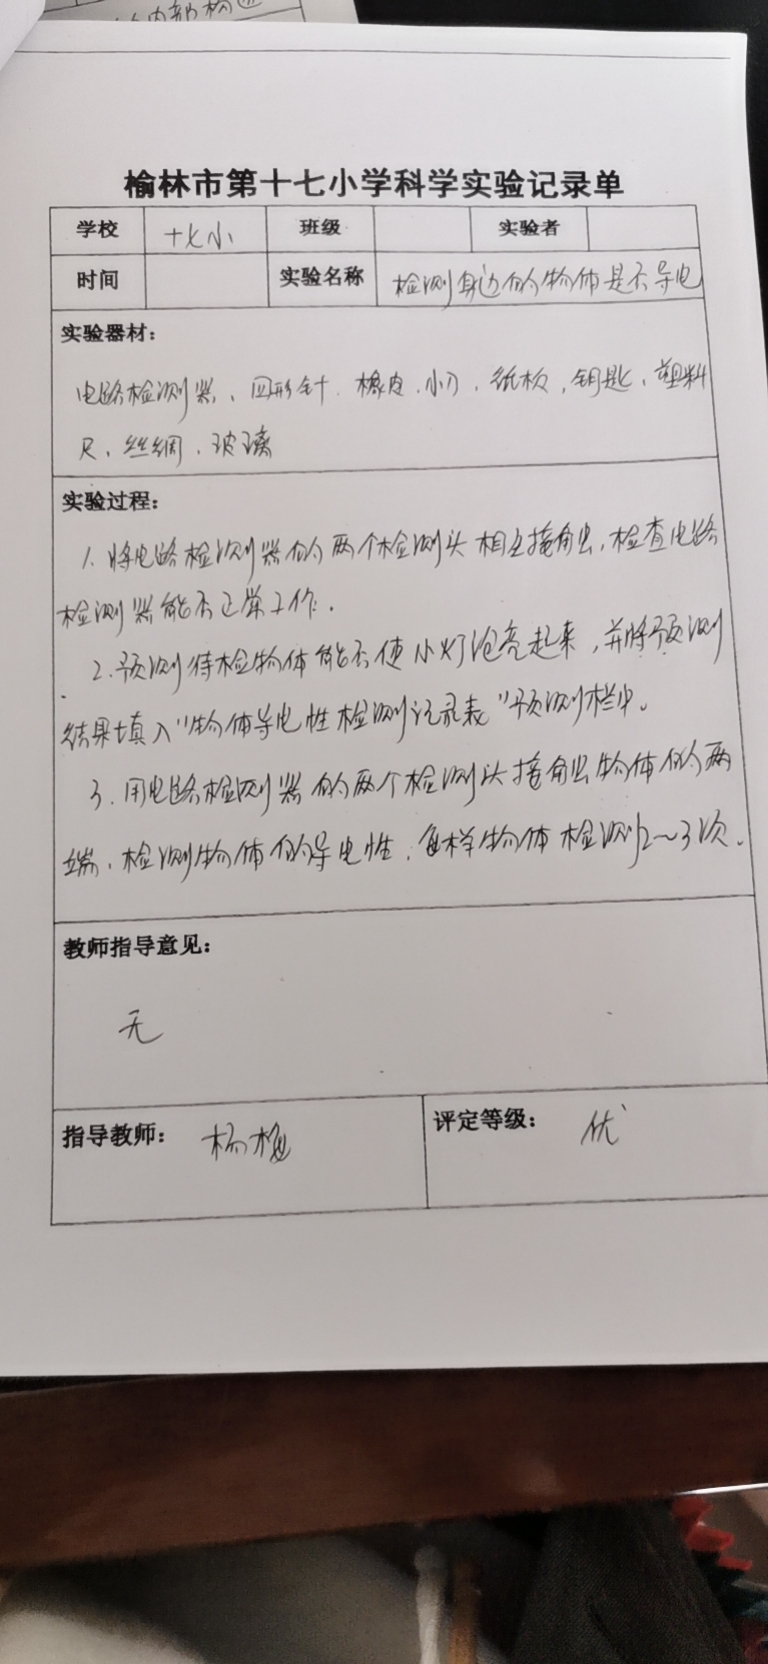 内部构造
榆林市第十七小学科学实验记录单
学校 十七小 班级 实验者
时间 实验名称 检测身边的物体是否导电
实验器材：
电路检测器、回形针、橡皮、小刀、纸板、钥匙、塑料
尺、丝绸、玻璃
实验过程：
1、将电路检测器的两个检测头相互接触，检查电路
检测器能否正常工作.
2、预测待检物体能否使小灯泡亮起来，并将预测
结果填入"物体导电性检测记录表"预测栏中。
3、用电路检测器的两个检测头接触物体的两
端，检测物体的导电性，每样物体检测2~3次.
教师指导意见：
无
指导教师： 杨梅 评定等级： 优